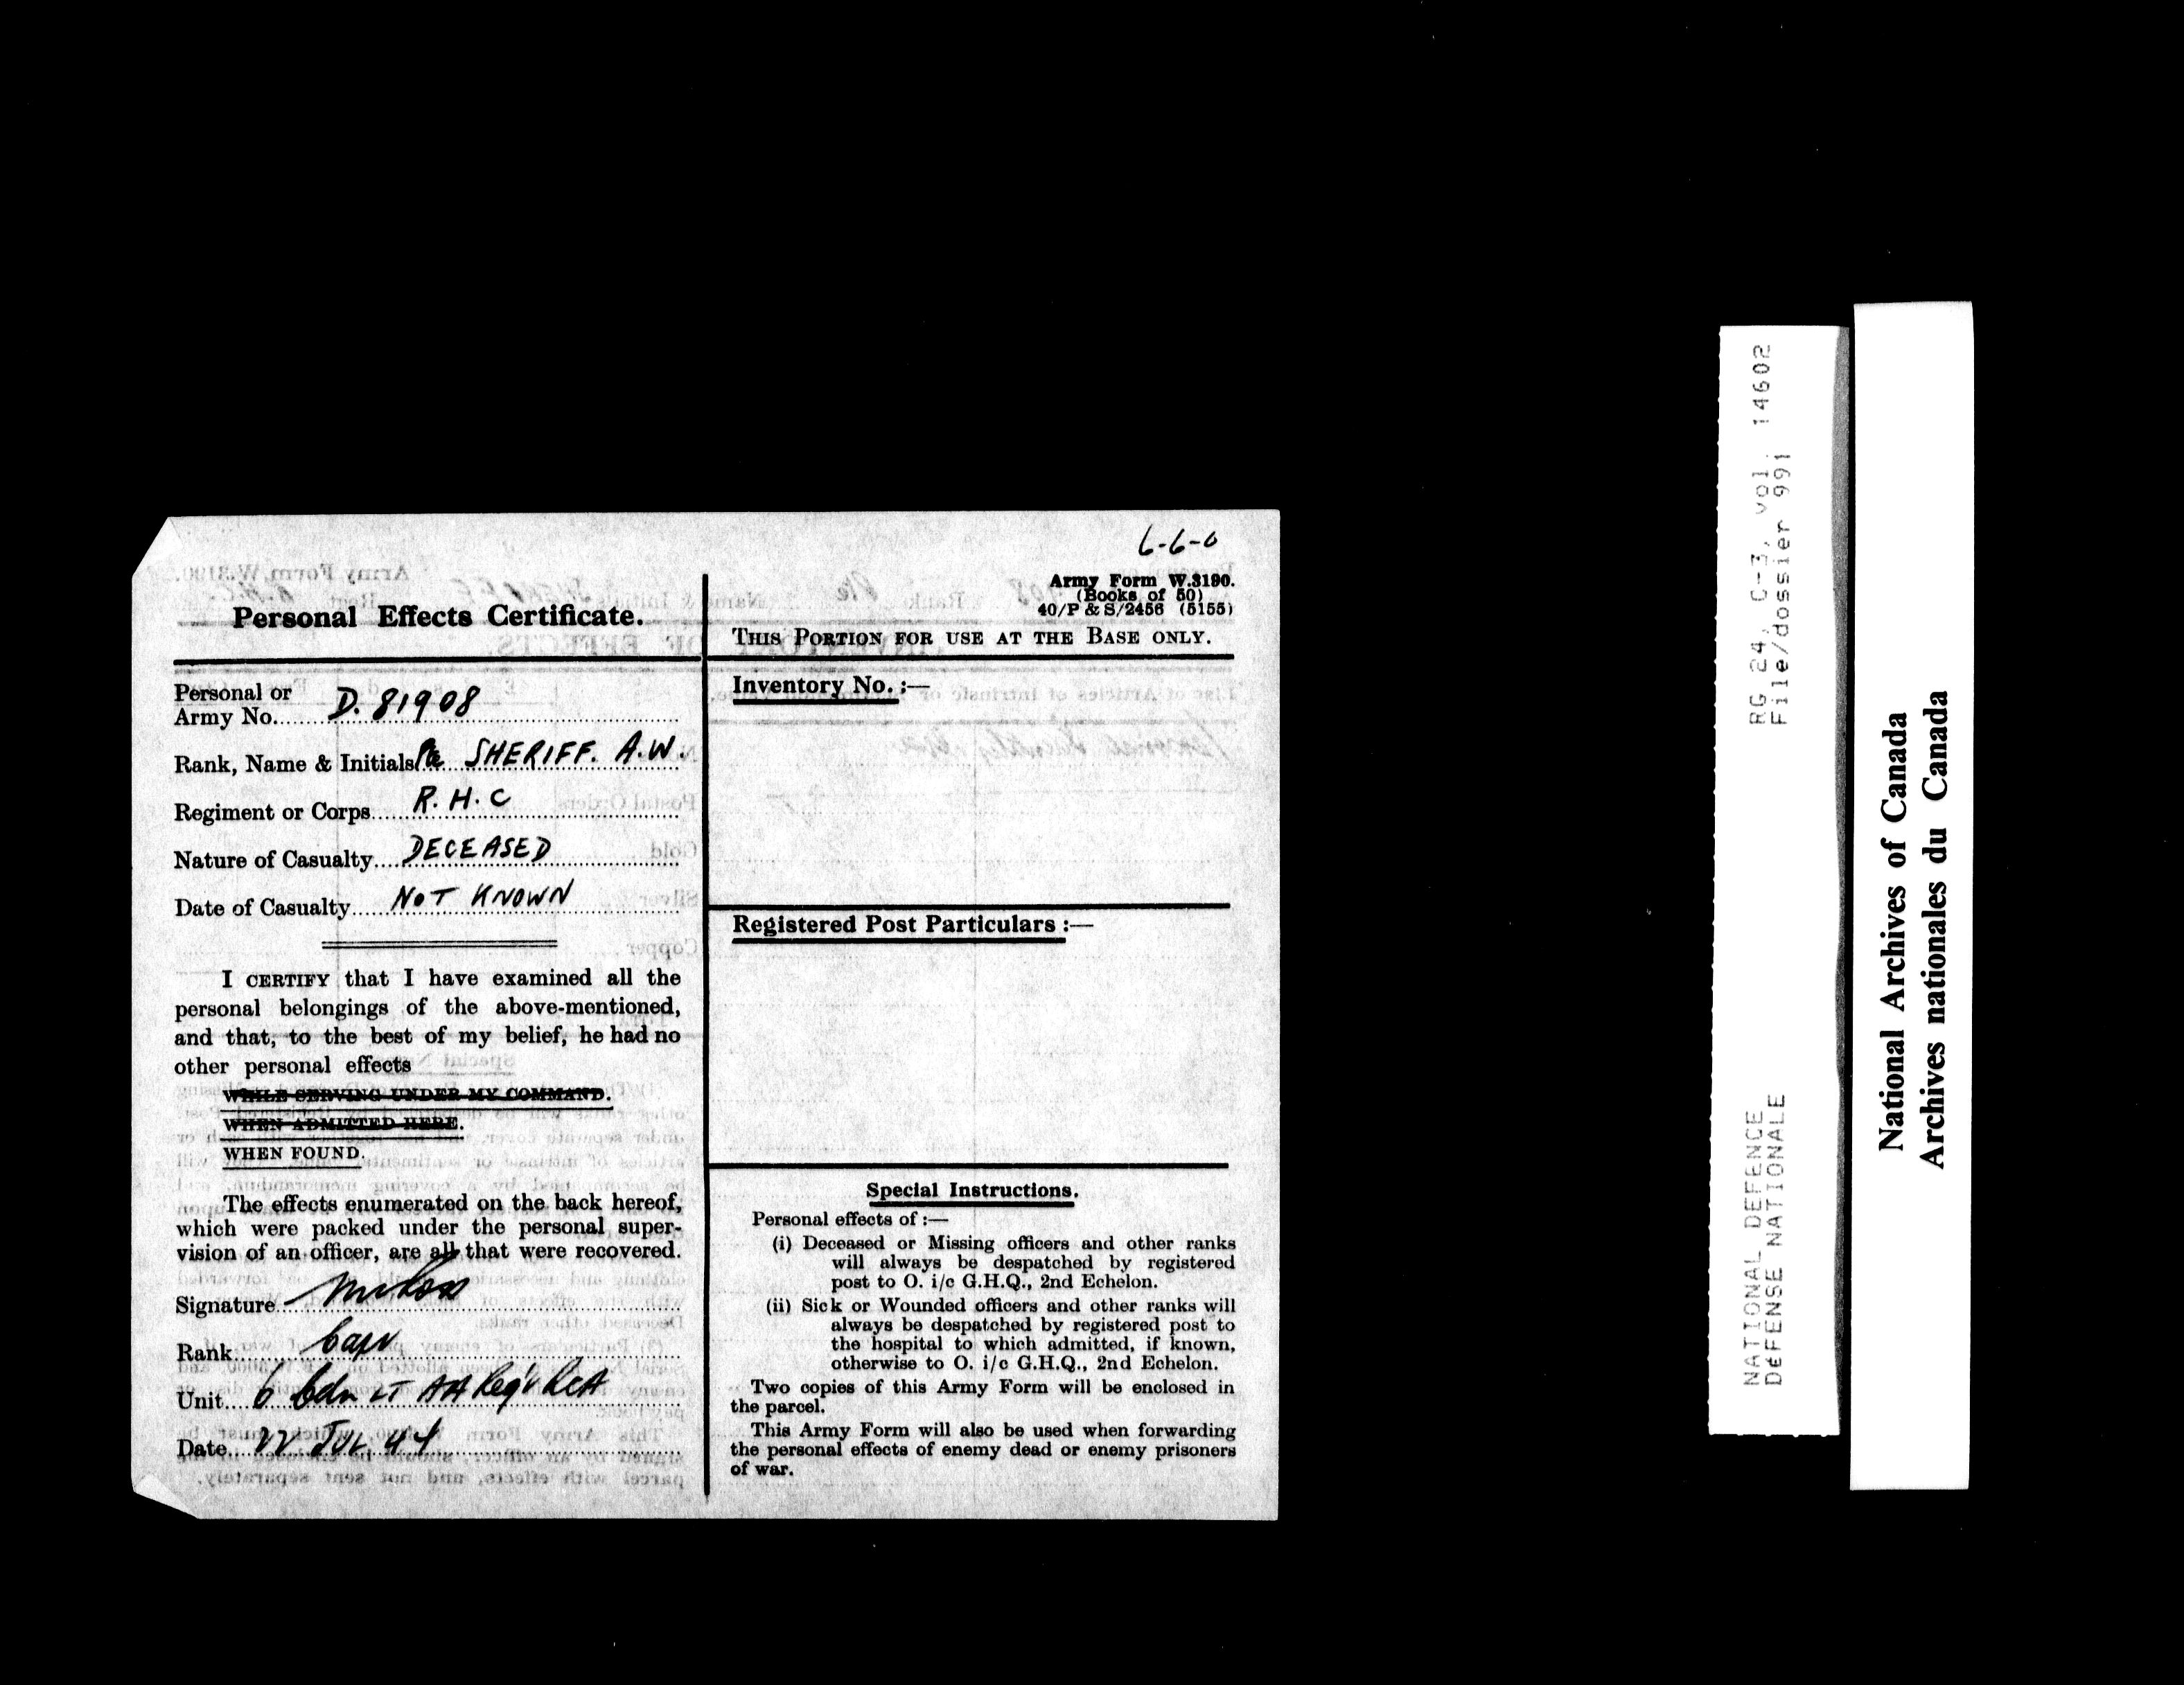 6-6-0
Personal Effects Certificate.
Personal or
Army No. D. 81908
Rank, Name & Initials Pte SHERIFF. A.W.
Regiment or Corps R. H. C
Nature of Casualty DECEASED
Date of Casualty NOT KNOWN
I CERTIFY that I have examined all the
personal belongings of the above-mentioned,
and that, to the best of my belief, he had no
other personal effects
WHILE SERVING UNDER MY COMMAND.
WHEN ADMITTED HERE.
WHEN FOUND.
The effects enumerated on the back hereof,
which were packed under the personal super-
vision of an officer, are all that were recovered.
Signature
Rank Capt
Unit 6 Cdn LT AA Reg't RCA
Date 22 JUL 44
Army Form W.3190.
(Books of 50)
40/P & S/2456 (5155)
THIS PORTION FOR USE AT THE BASE ONLY.
Inventory No. :—
Registered Post Particulars :—
Special Instructions.
Personal effects of :—
(i) Deceased or Missing officers and other ranks
will always be despatched by registered
post to O. i/c G.H.Q., 2nd Echelon.
(ii) Sick or Wounded officers and other ranks will
always be despatched by registered post to
the hospital to which admitted, if known,
otherwise to O. i/c G.H.Q., 2nd Echelon.
Two copies of this Army Form will be enclosed in
the parcel.
This Army Form will also be used when forwarding
the personal effects of enemy dead or enemy prisoners
of war.
NATIONAL DEFENCE RG 24, C-3, vol. 14602
DéFENSE NATIONALE File/dossier 991
National Archives of Canada
Archives nationales du Canada